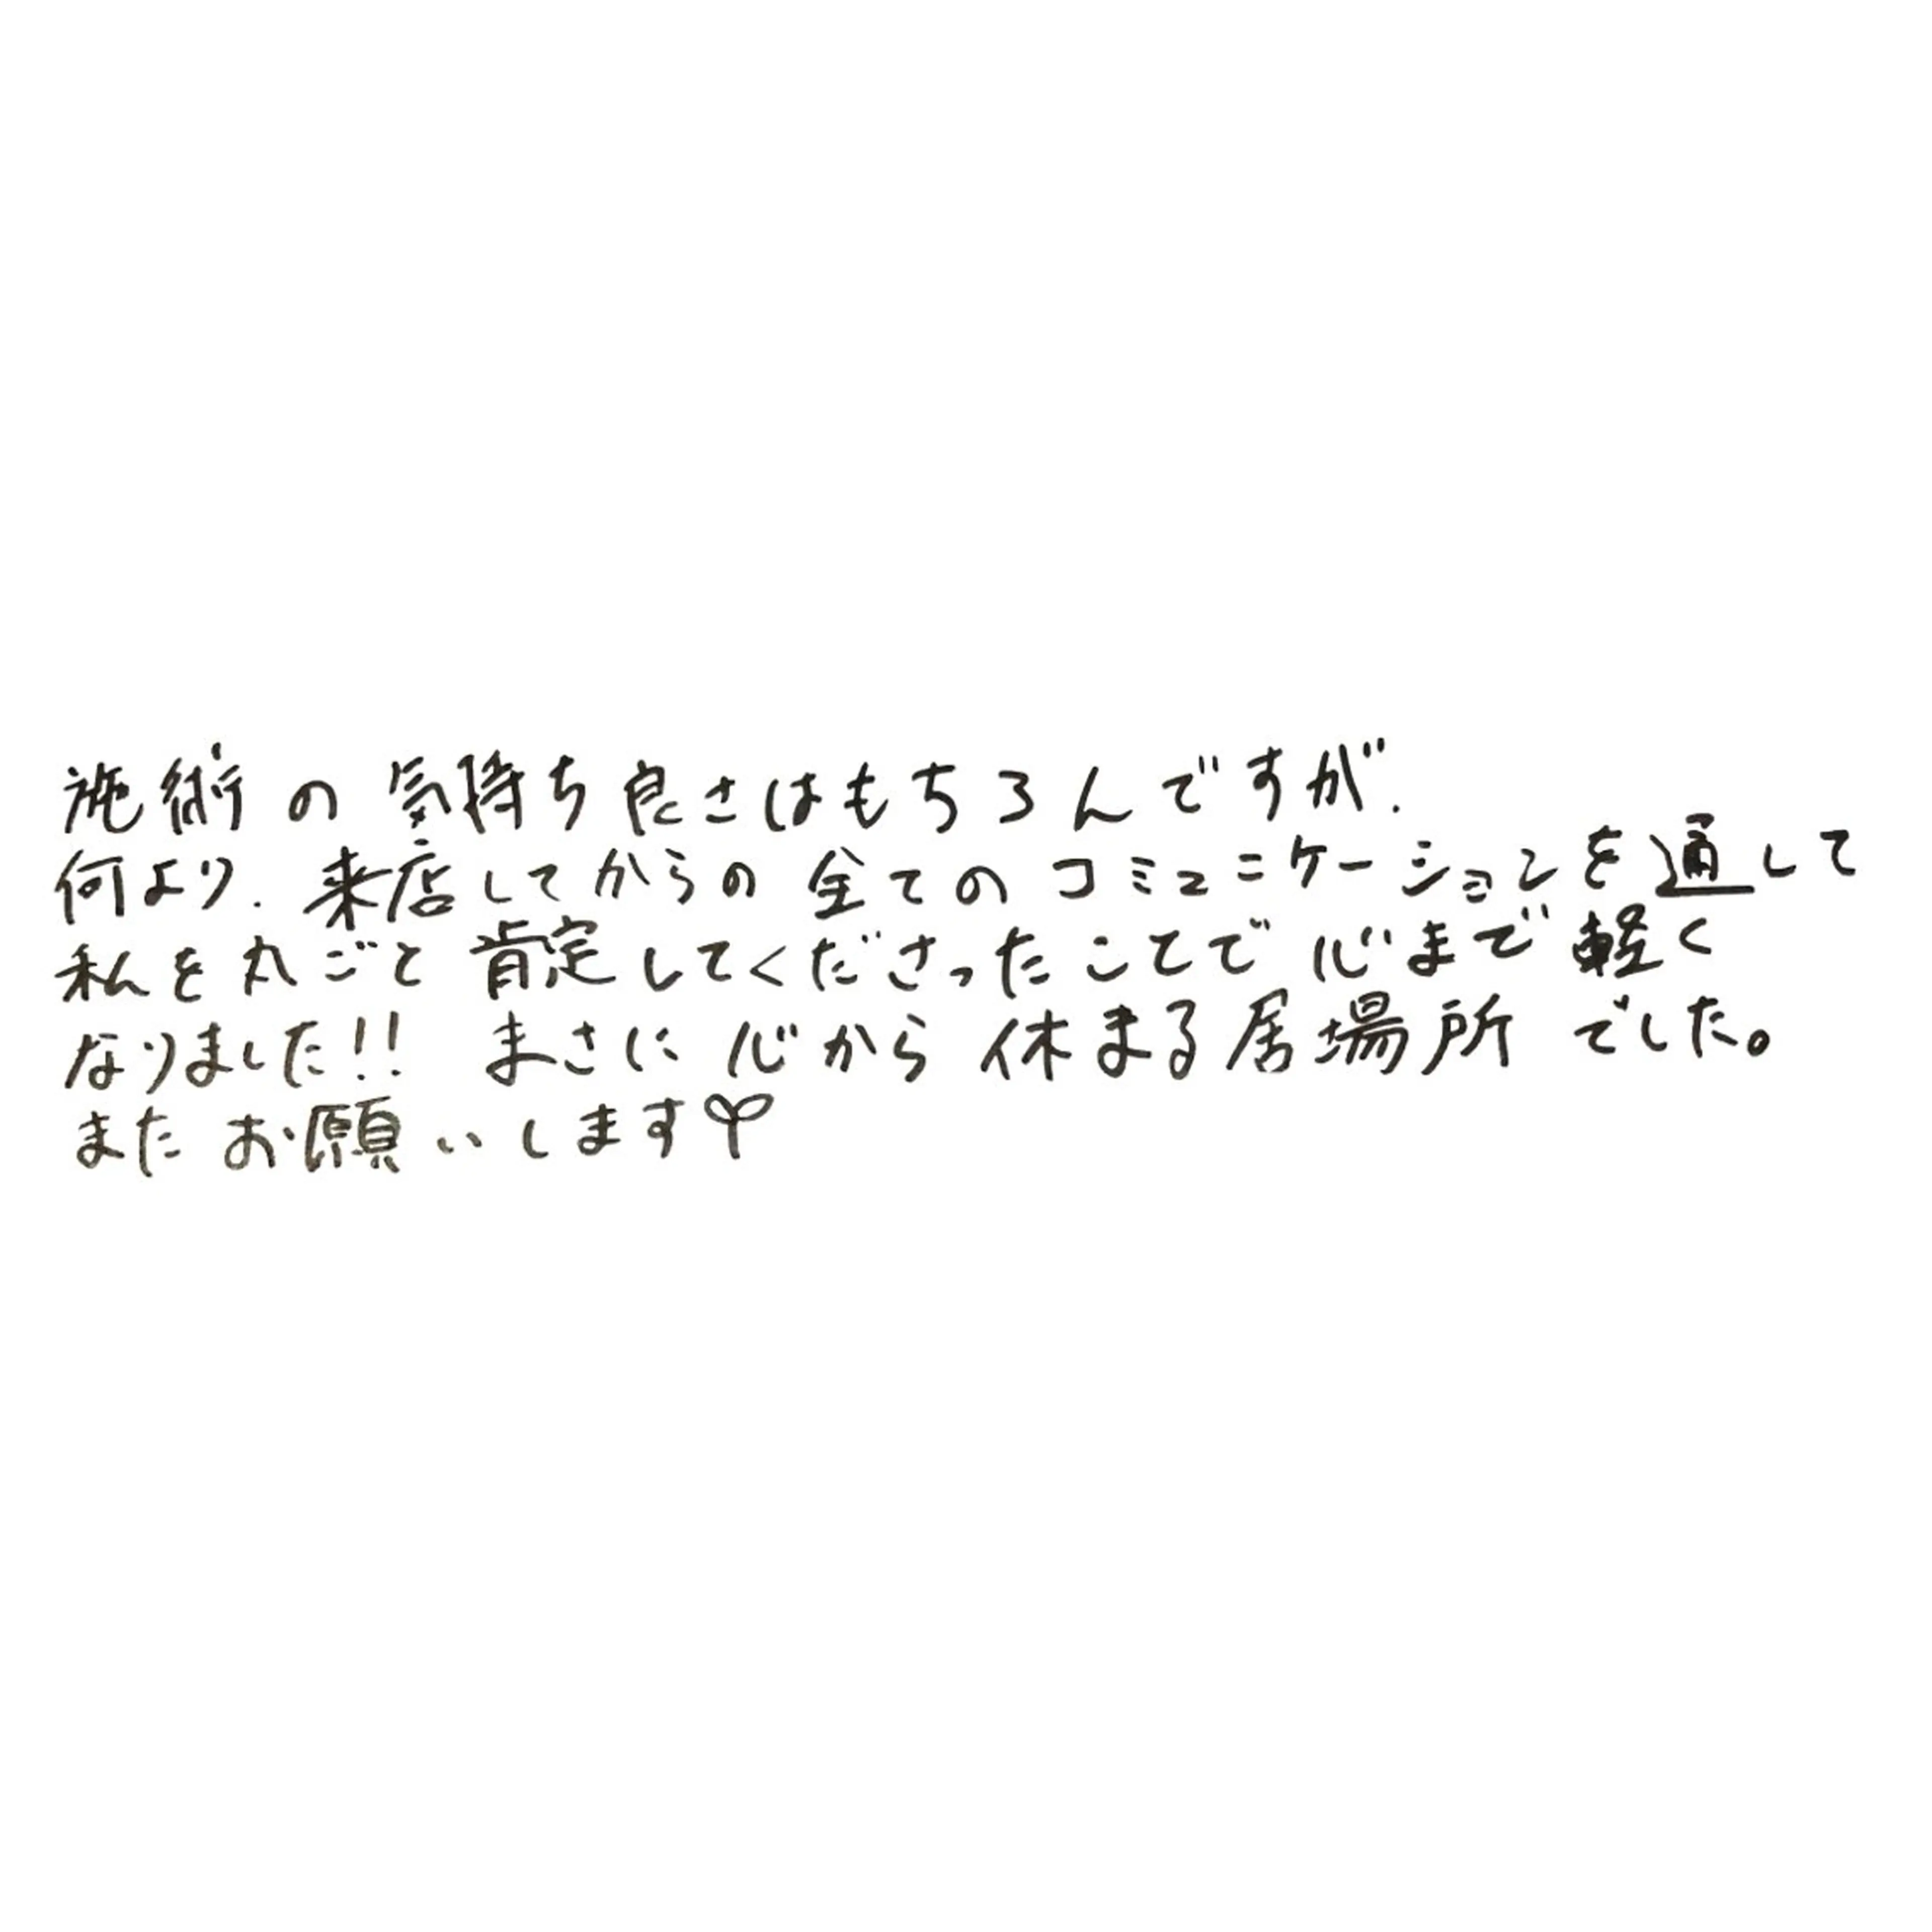 施術の気持ち良さはもちろんですが.
何より.来店してからの全てのコミュニケーションを通して
私を丸ごと肯定してくださったことで心まで軽く
なりました!! まさに心から休まる居場所でした。
またお願いします